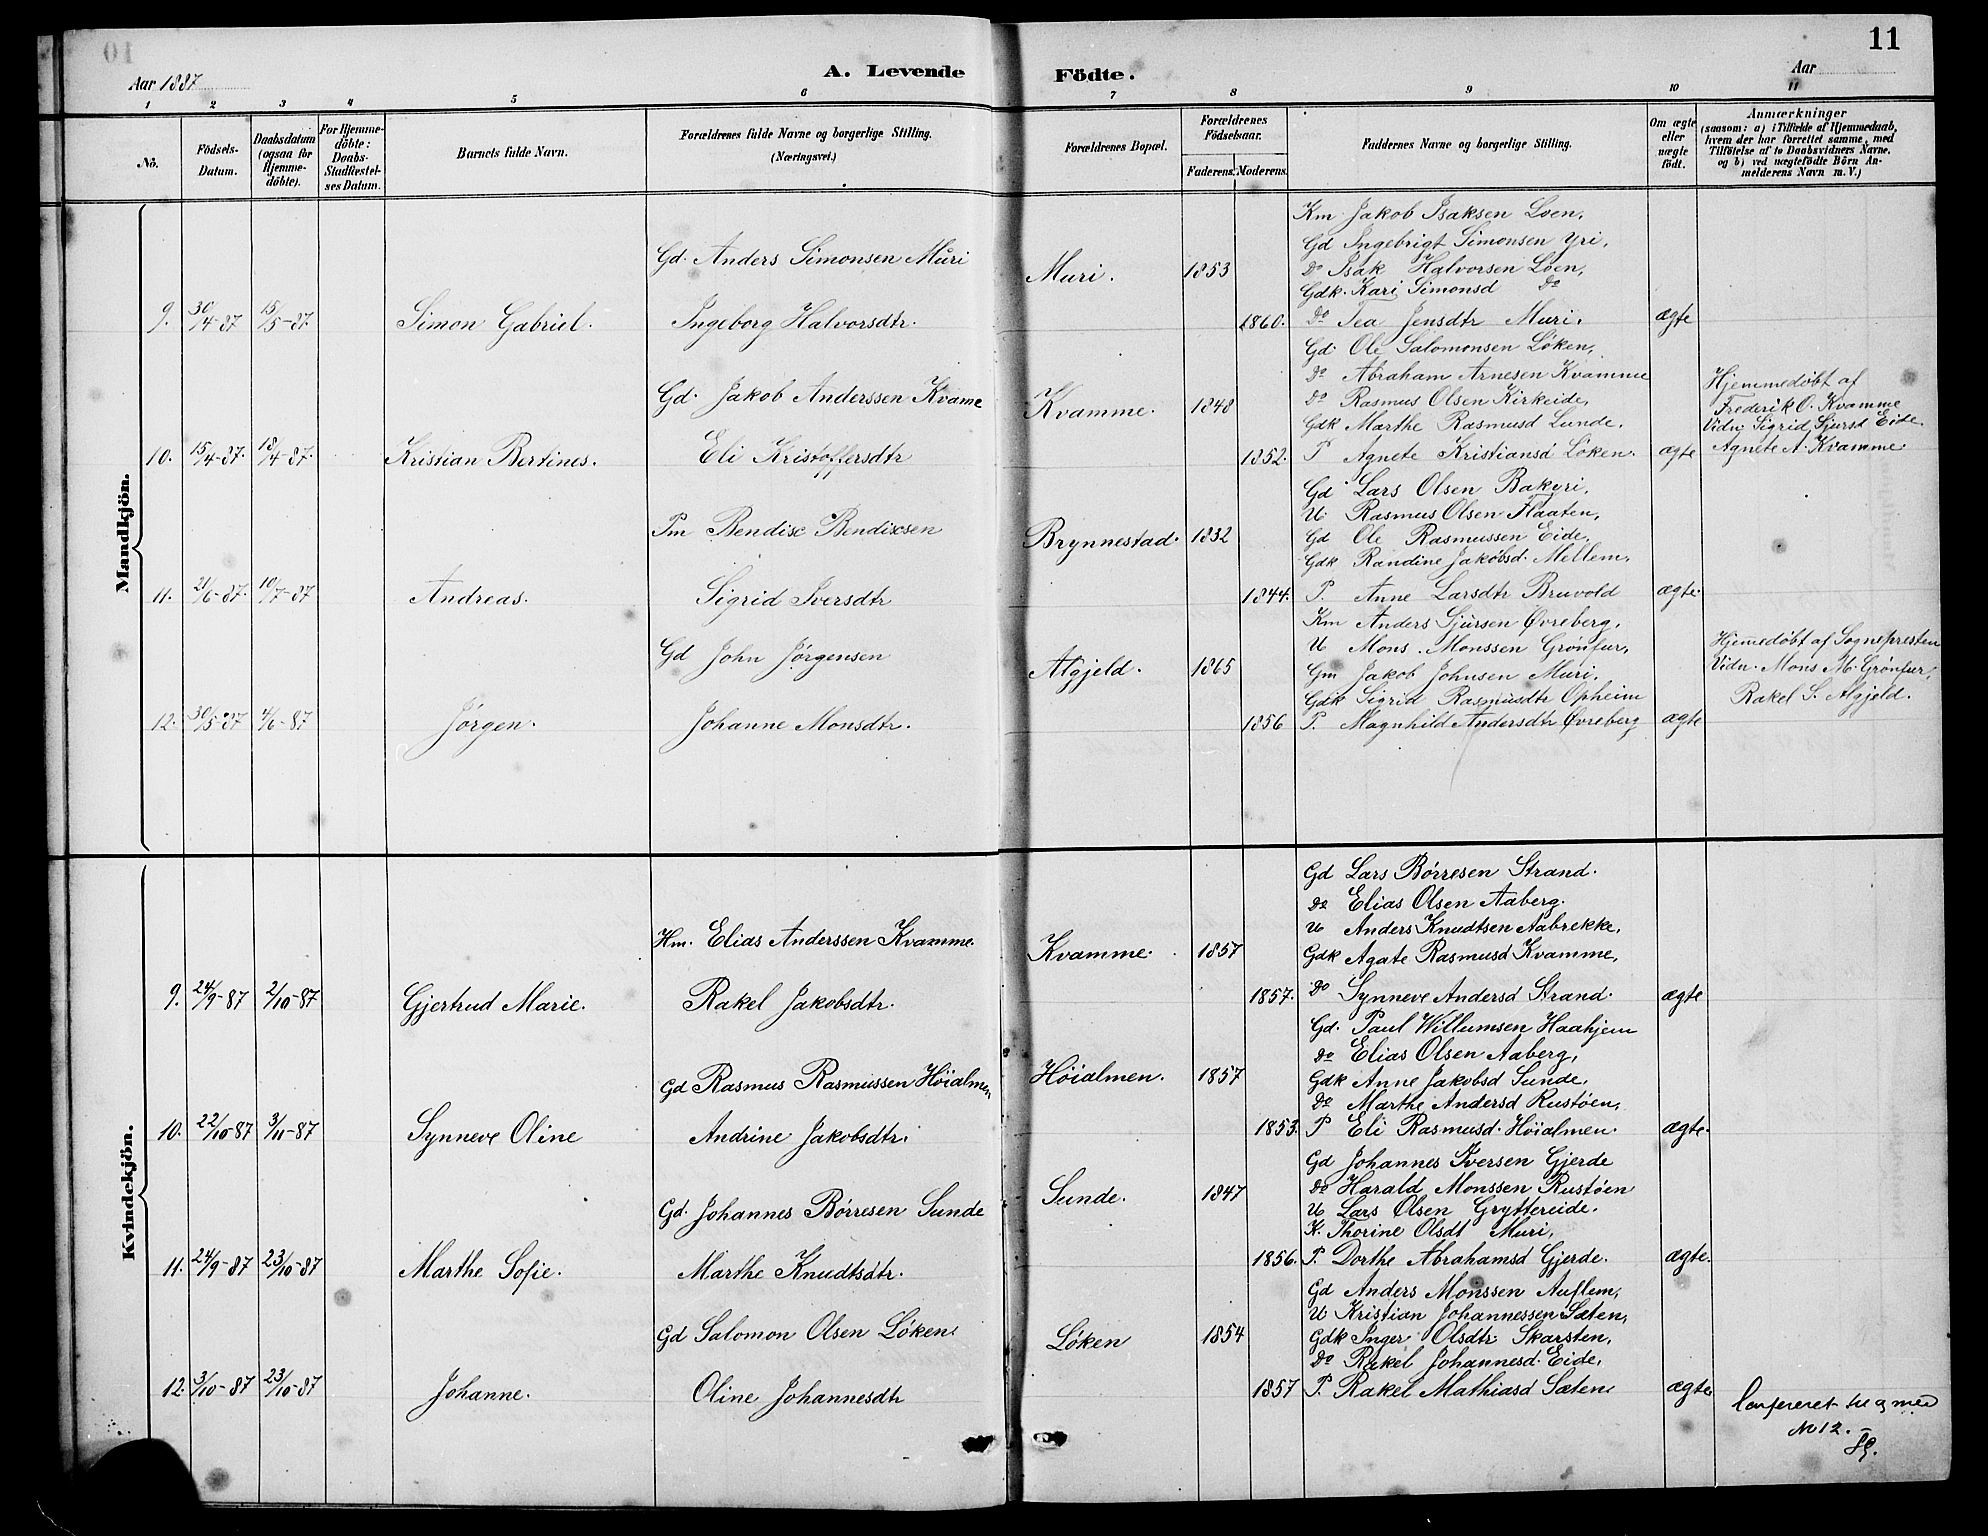 11
Aar 1887
A. Levende Födte.
Aar
1 2 3 4 5 6 7 8 9 10 11
Nô.
Födsels-Datum.
Daabsdatum (ogsaa for Hjemme-döbte).
For Hjemme-döbte: Daabs-Stadfæstel-ses Datum.
Barnets fulde Navn.
Forældrenes fulde Navne og borgerlige Stilling.
(Næringsvei.)
Forældrenes Bopæl.
Forældrenes Födselsaar.
Faderens. Moderens.
Faddernes Navne og borgerlige Stilling.
Om ægte eller uægte födt.
Anmærkninger
(saasom: a) i Tilfælde af Hjemmedaab,
hvem der har forrettet samme, med
Tilföielse af to Daabsvidners Navne,
og b) ved uægtefödte Börn An-
melderens Navn m. V.)
Mandkjön.
Km Jakob Isaksen Loen,
Gd Ingebrigt Simonsen Yri,
Gd. Anders Simonsen Muri
Muri. 1853
Do Isak Halvorsen Loen,
Gdk. Kari Simonsd Do
9. 30/4-87 15/5-87. Simon Gabriel. Ingeborg Halvorsdtr. 1860. Do Tea Jensdtr Muri. ægte
Gd. Ole Salomonsen Löken,
Do Abraham Arnesen Kvamme
Gd. Jakob Anderssen Kvame
Kvamme. 1848
Do Rasmus Olsen Kirkeide,
Gdk Marthe Rasmusd Lunde.
Hjemmedöbt af
Frederik O. Kvamme
Vidn. Sigrid Sjursd Eide
Agnete A. Kvamme
10. 15/4-87. 18/4-87. Kristian Bertines. Eli Kristoffersdtr 1852. P Agnete Kristiansd Löken. ægte
Gd Lars Olsen Bakyri,
U Rasmus Olsen Flaaten,
Pm Bendix Bendixsen
Brynnestad. 1832
Gd Ole Rasmussen Eide,
Gdk Randine Jakobsd. Mellem,
11. 21/6-87. 10/7-87 Andreas. Sigrid Iversdtr 1844. P. Anne Larsdtr Bruvold ægte.
Km Anders Sjursen Øvreberg,
U Mons Monssen Grönfur,
Gd John Jørgensen
Algjeld. 1865
Gm Jakob Johnsen Muri,
Gdk Sigrid Rasmusdtr Opheim
Hjemmedöbt af Sognepresten
Vidn. Mons M. Grönfur,
Rakel S. Algjeld.
12. 30/5-87 4/6-87 Jørgen. Johanne Monsdtr. 1856 P. Magnhild Andersdtr Øvreberg ægte
Kvindekjön.
Gd Lars Børresen Strand.
Do Elias Olsen Aaberg.
U Anders Knudtsen Aabrekke,
Hm. Elias Anderssen Kvamme.
Kvamme. 1857
Gdk Agate Rasmusd Kvamme,
9. 24/9-87 2/10-87 Gjertrud Marie. Rakel Jakobsdtr. 1857. Do Synneve Andersd Strand. ægte
Gd. Paul Willumsen Haahjem
Do Elias Olsen Aaberg,
Gd Rasmus Rasmussen Höialmen
Höialmen. 1857
Gdk Anne Jakobsd Sunde,
Do Marthe Andersd Rustöen,
10. 22/10-87 3/11-87 Synneve Oline Andrine Jakobsdtr. 1853. P Eli Rasmusd. Höialmen. ægte.
Gd Johannes Iversen Gjerde
Do Harald Monssen Rustöen
Gd. Johannes Börresen Sunde
Sunde. 1847
U Lars Olsen Gryttereide.
K. Thorine Olsdt Muri,
11. 24/9-87 23/10-87 Marthe Sofie. Marthe Knudtsdtr. 1856. P. Dorthe Abrahamsd Gjerde. ægte.
Gd Anders Monssen Auflem,
U Kristian Johannessen Sæten,
Gd Salomon Olsen Löken
Löken 1854
Gdk Inger Olsdtr Skarsten,
Do Rakel Johannesd. Eide,
12. 3/10-87 23/10-87 Johanne. Oline Johannesdtr 1857 P. Rakel Mathiasd Sæten ægte
Confereret til og med
No 12.